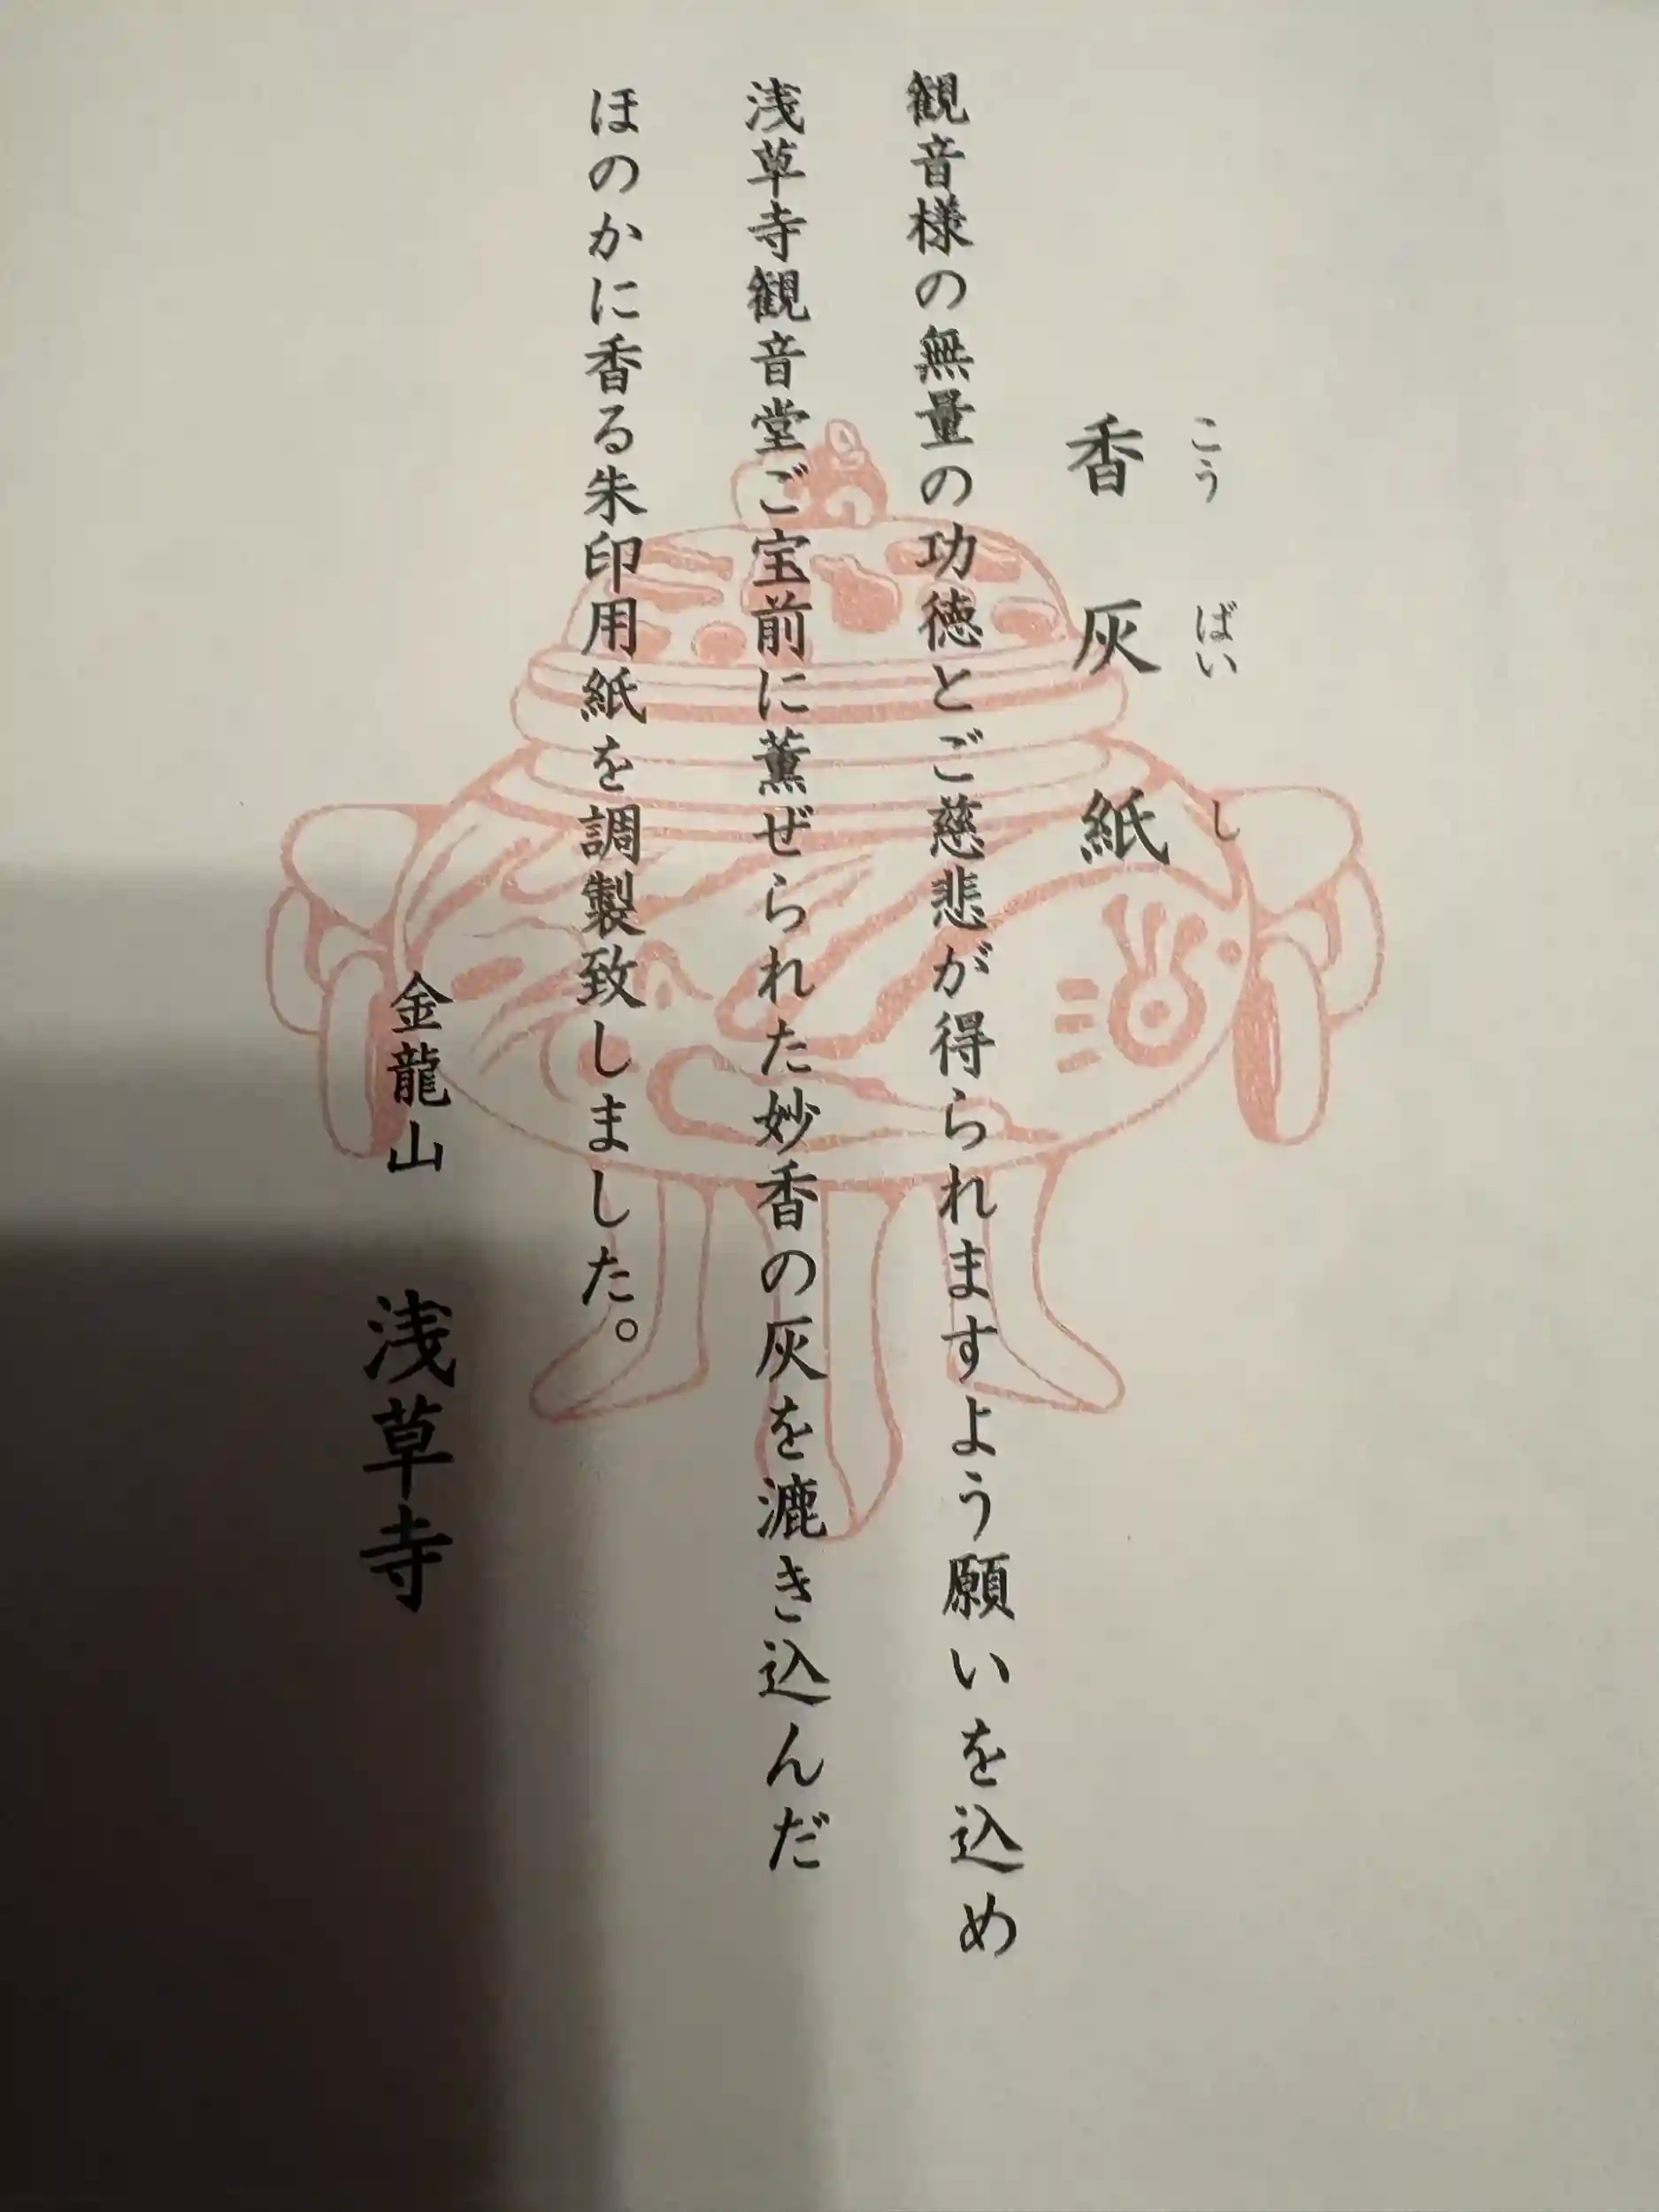 こうばいし
香灰紙
観音様の無量の功徳とご慈悲が得られますよう願いを込め
浅草寺観音堂ご宝前に薫ぜられた妙香の灰を漉き込んだ
ほのかに香る朱印用紙を調製致しました。
金龍山 浅草寺